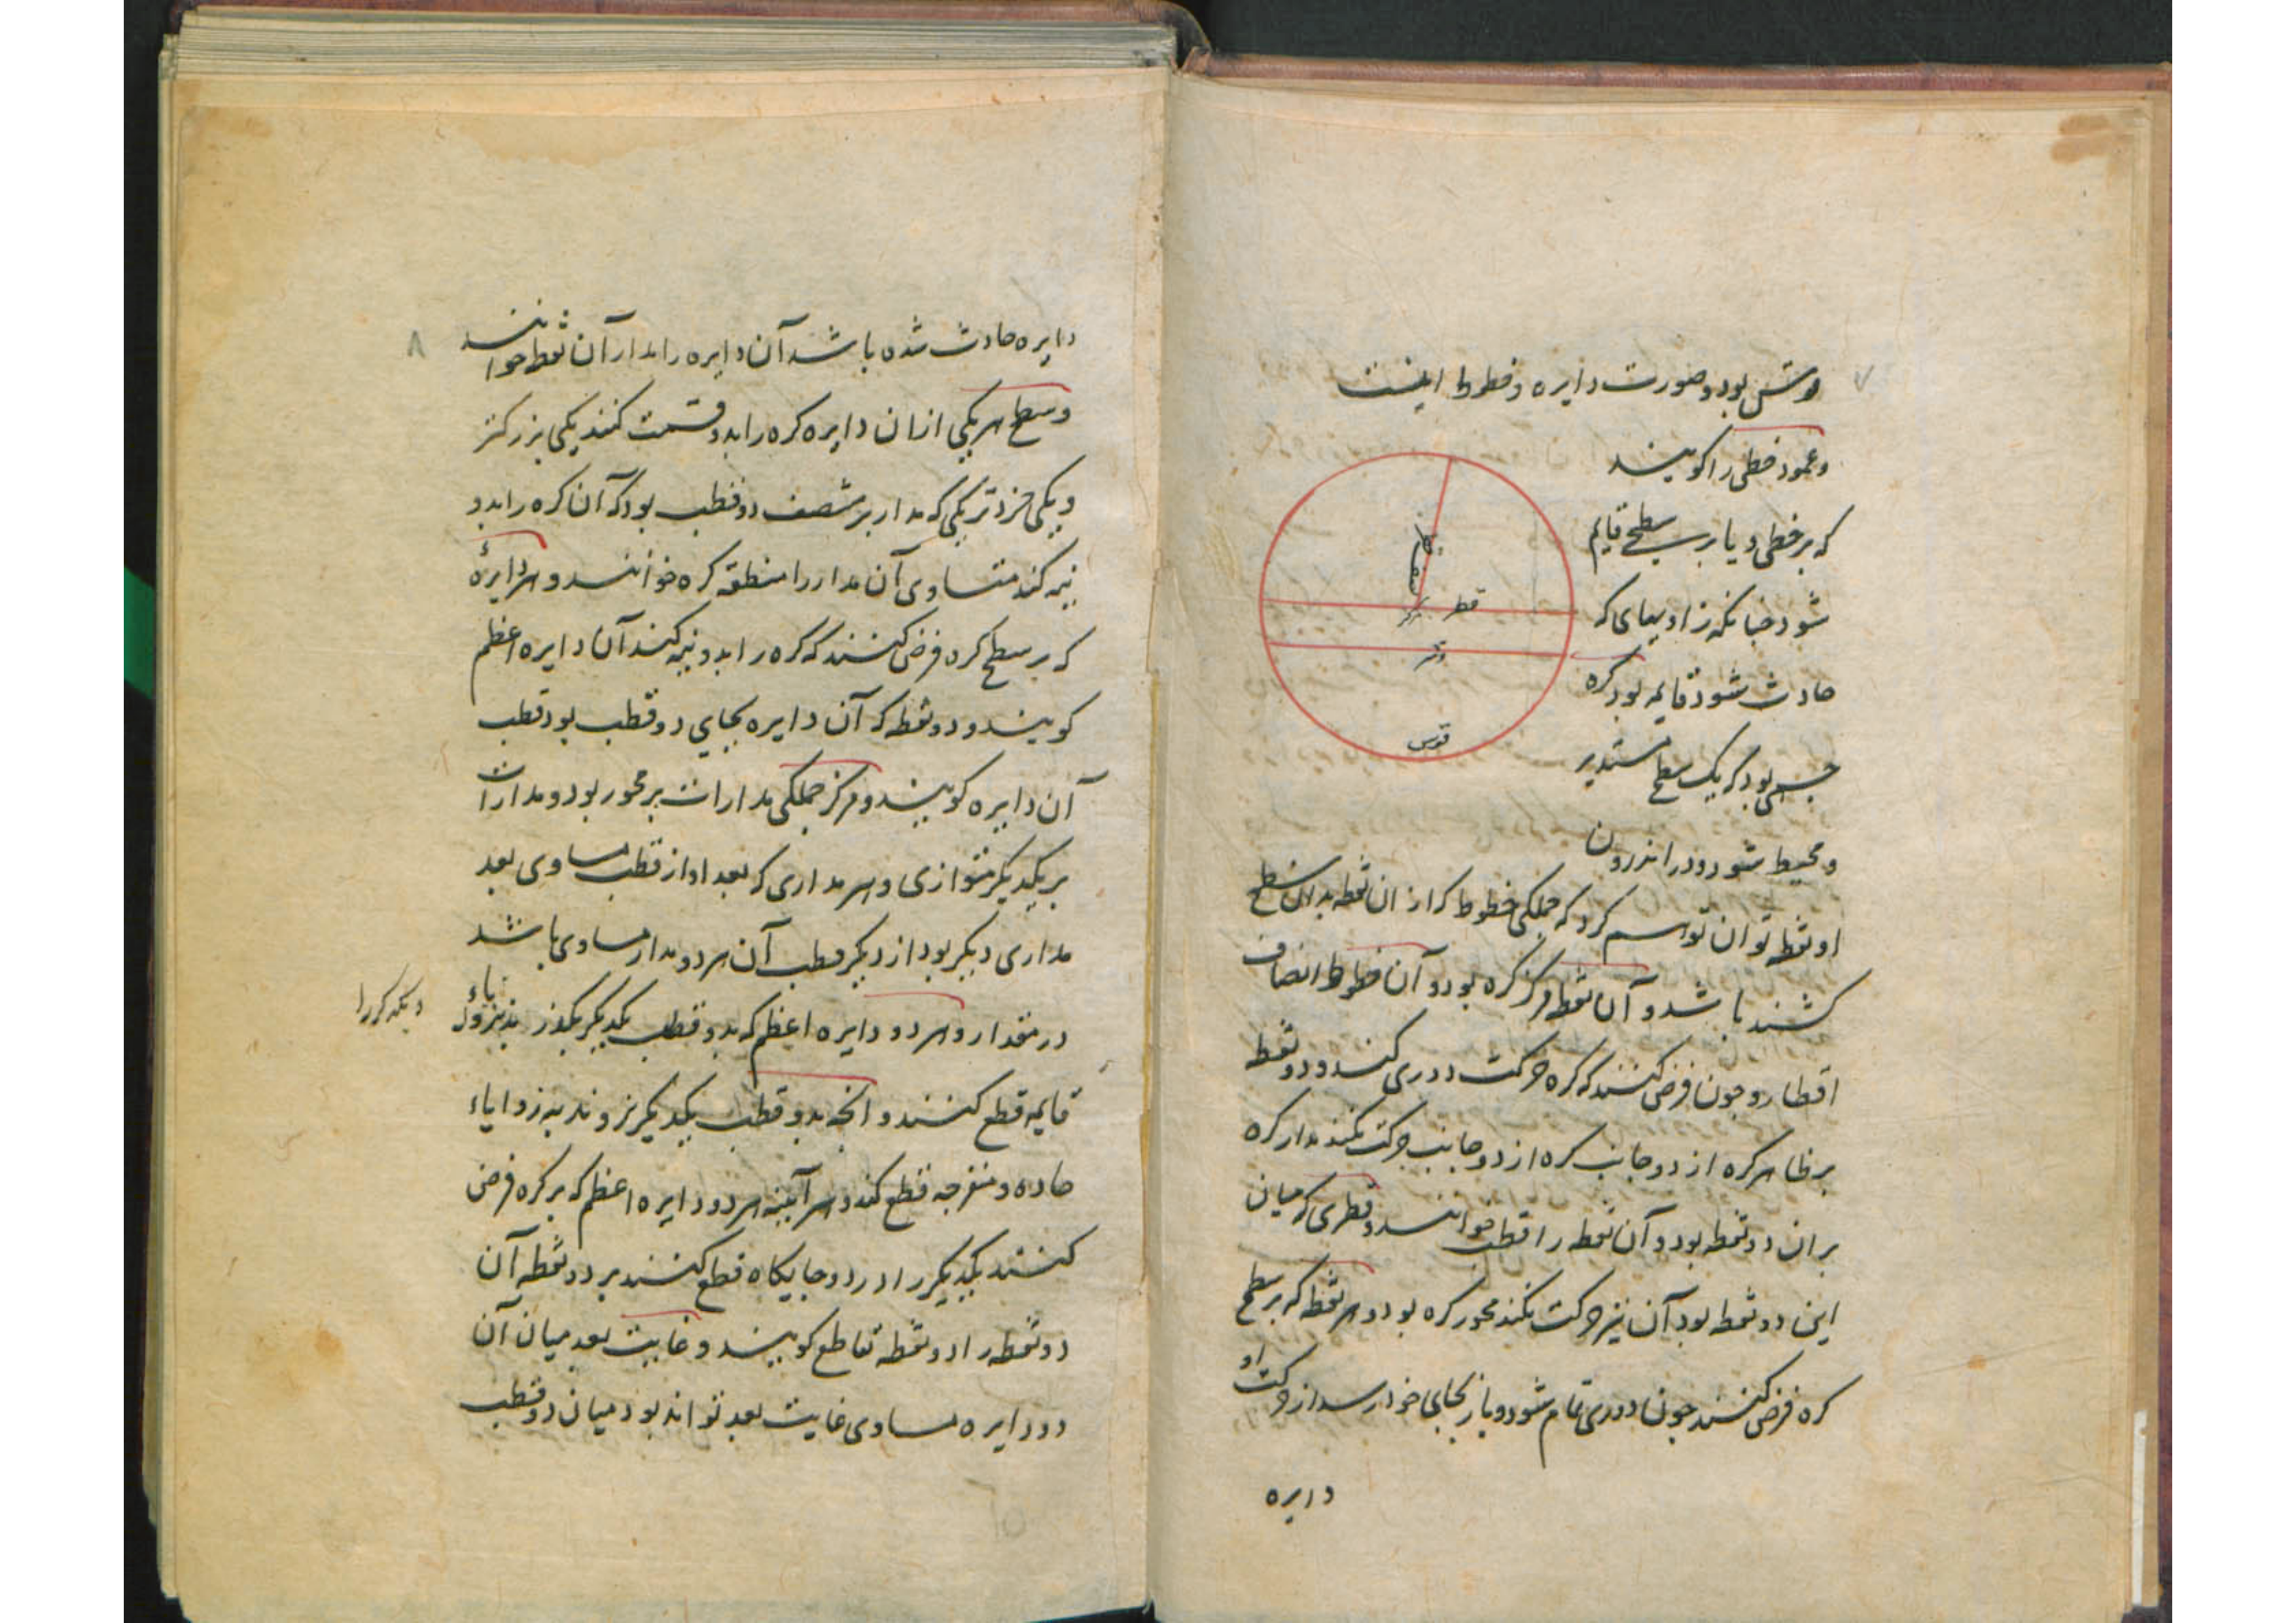 ۷
قوسش بود و صورت دایره و خطوط اینست
و عمود خطی را کویند
که بر خطی و یا بر سطحی قایم
شود چنانکه زاویهای که
حادث شود قایمه بود کره
جسمی بود که یک سطح مستدیر
و محیط شود و در اندرون
او نقطه توان توسم کرد که جملکی خطوط که از ان نقطه بدان سطح
کشند باشد و آن نقطه مرکز کره بود و آن خطوط انصاف
اقطار و چون فرض کنند که کره حرکت دوری کند و دو نقطه
بر ظاهر کره از دو جانب کره از دو جانب حرکت نکند مدار کره
بران دو نقطه بود و آن نقطه را قطب خوانند و قطری که میان
این دو نقطه بود آن نیز حرکت نکند محور کره بود و هر نقطه که بر سطح
کره فرض کنند چون دوری تمام شود و باز بجای خود رسد از حرکت او
دایره
قطر
مرکز
وتر
قوس
نصف قطر
۸
دایره حادث شده باشد آن دایره را مدار آن نقطه خوانند
و سطح هر یکی ازان دایره کره را بدو قسمت کنند یکی بزرکتر
و یکی خردتر یکی که مدار بر منتصف دو قطب بود که آن کره را بدو
نیمه کند متساوی آن مدار را منطقه کره خوانند و هر دایرهٔ
که بر سطح کره فرض کنند که کره را بدو نیمه کند آن دایره اعظم
کویند و دو نقطه که آن دایره بجای دو قطب بود قطب
آن دایره کویند و مرکز جملکی مدارات بر محور بود و مدارات
بر یکدیکر متوازی و هر مداری که بعد او از قطب مساوی بعد
مداری دیکر بود از دیکر قطب آن هر دو مدار مساوی باشد
در مقدار و هر دو دایره اعظم که بدو قطب یکدیکر بکذرند بزوایاء
دیکر را
قایمه قطع کنند و انچه بدو قطب یکدیکر نروند به زوایاء
حاده و منفرجه قطع کند و هر آینه هر دو دایره اعظم که بر کره فرض
کنند یکدیکر را در دو جایکاه قطع کنند بر دو نقطه آن
دو نقطه را دو نقطه تقاطع کویند و غایت بعد میان آن
دو دایره مساوی غایت بعد تواند بود میان دو قطب